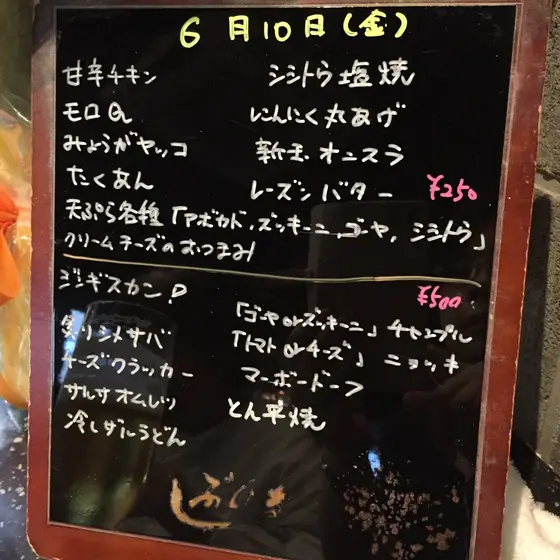 6月10日(金)
甘辛チキン
シシトウ塩焼
モロQ
にんにく丸あげ
みょうがヤッコ
新玉オニスラ
たくあん
レーズンバター
¥250
天ぷら各種「アボカド,ズッキーニ,ゴーヤ,シシトウ」
クリームチーズのおつまみ
¥500
ジンギスカン!
「ゴーヤorズッキーニ」チャンプル
炙りシメサバ
「トマトorチーズ」ニョッキ
チーズクラッカー
マーボードーフ
サルサオムレツ
とん平焼
冷しザルうどん